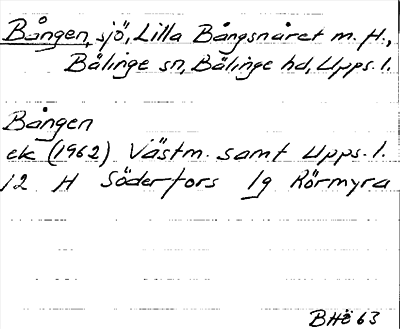 Bången, sjö, Lilla Bångsnåret m. fl.,
Bälinge sn, Bälinge hd, Upps. l.
Bången
ek (1962) Västm. samt Upps. l.
12 H Söderfors 1g Rörmyra
BHö 63